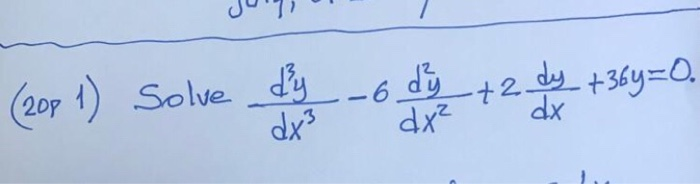 (20p 1) Solve d³y/dx³ - 6 d²y/dx² + 2 dy/dx + 36y = 0.